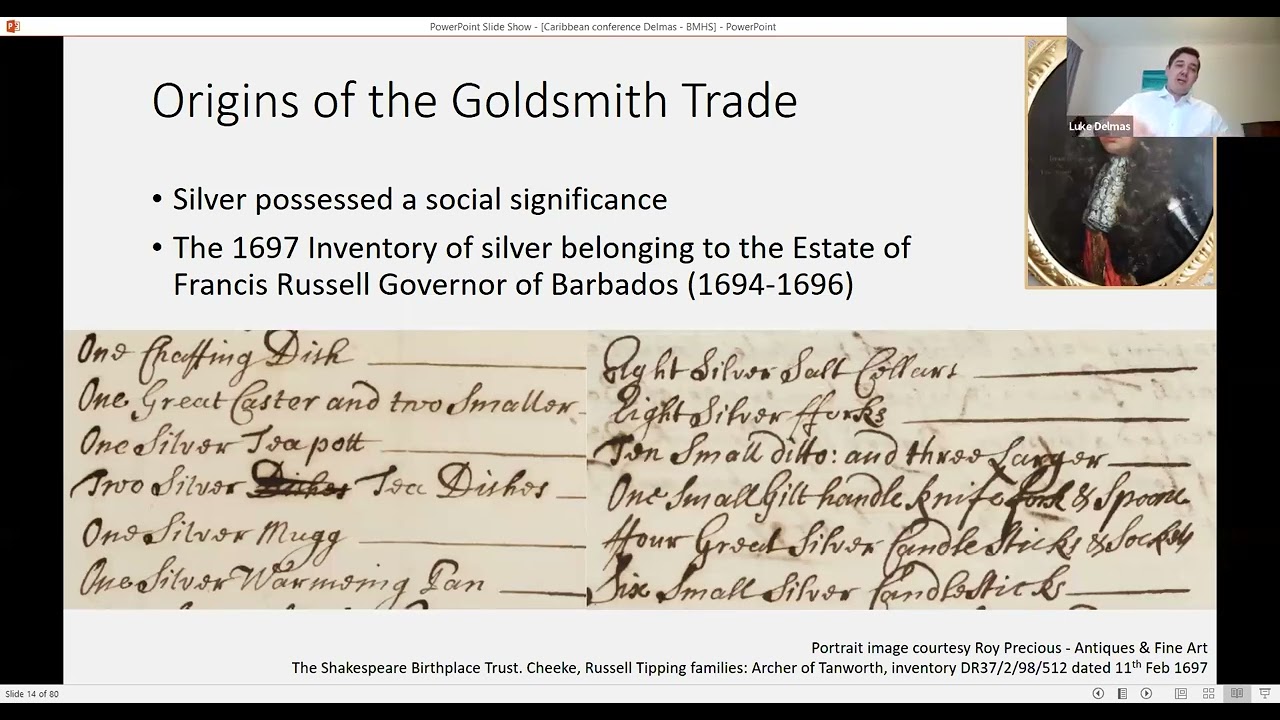 PowerPoint Slide Show - [Caribbean conference Delmas - BMHS] - PowerPoint
Luke Delmas
Origins of the Goldsmith Trade
• Silver possessed a social significance
• The 1697 Inventory of silver belonging to the Estate of
Francis Russell Governor of Barbados (1694-1696)
One Chaffing Dish
One Great Caster and two Smaller
One Silver Tea pott
Two Silver Dishes Tea Dishes
One Silver Mugg
One Silver Warmeing Pan
Eight Silver Salt Cellars
Eight Silver fforks
Ten Small ditto: and three Larger
One Small Gilt handle knife fork & Spoone
ffour Great Silver CandleSticks & Socketts
Six Small Silver CandleSticks
Portrait image courtesy Roy Precious - Antiques & Fine Art
The Shakespeare Birthplace Trust. Cheeke, Russell Tipping families: Archer of Tanworth, inventory DR37/2/98/512 dated 11th Feb 1697
Slide 14 of 80